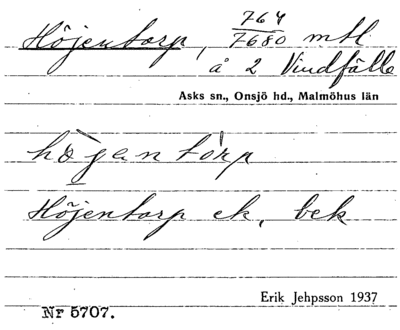 Höjentorp, 764/7680 mtl
å 2 Vindfälle
Asks sn., Onsjö hd., Malmöhus län
hògantórp
Höjentorp ek, bek
Erik Jehpsson 1937
Nr 5707.